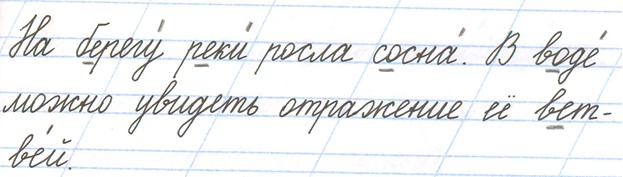 На берегу́ реки́ росла сосна́. В воде́
можно увидеть отражение её вет-
ве́й.